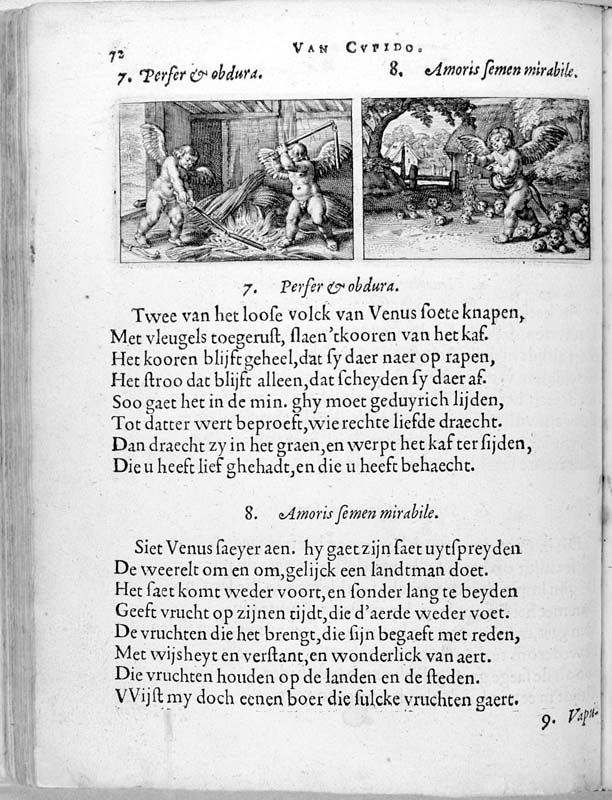 72
VAN CVPIDO.
7. Perfer & obdura.
8. Amoris ſemen mirabile.
7. Perfer & obdura.
Twee van het looſe volck van Venus ſoete knapen,
Met vleugels toegeruſt, ſlaen 'tkooren van het kaf.
Het kooren blijft geheel, dat ſy daer naer op rapen,
Het ſtroo dat blijft alleen, dat ſcheyden ſy daer af.
Soo gaet het in de min. ghy moet geduyrich lijden,
Tot datter wert beproeft, wie rechte liefde draecht.
Dan draecht zy in het graen, en werpt het kaf ter ſijden,
Die u heeft lief ghehadt, en die u heeft behaecht.
8. Amoris ſemen mirabile.
Siet Venus ſaeyer aen. hy gaet zijn ſaet uytſpreyden
De weerelt om en om, gelijck een landtman doet.
Het ſaet komt weder voort, en ſonder lang te beyden
Geeft vrucht op zijnen tijdt, die d'aerde weder voet.
De vruchten die het brengt, die ſijn begaeft met reden,
Met wijsheyt en verſtant, en wonderlick van aert.
Die vruchten houden op de landen en de ſteden.
VVijſt my doch eenen boer die ſulcke vruchten gaert.
9. Vapu-